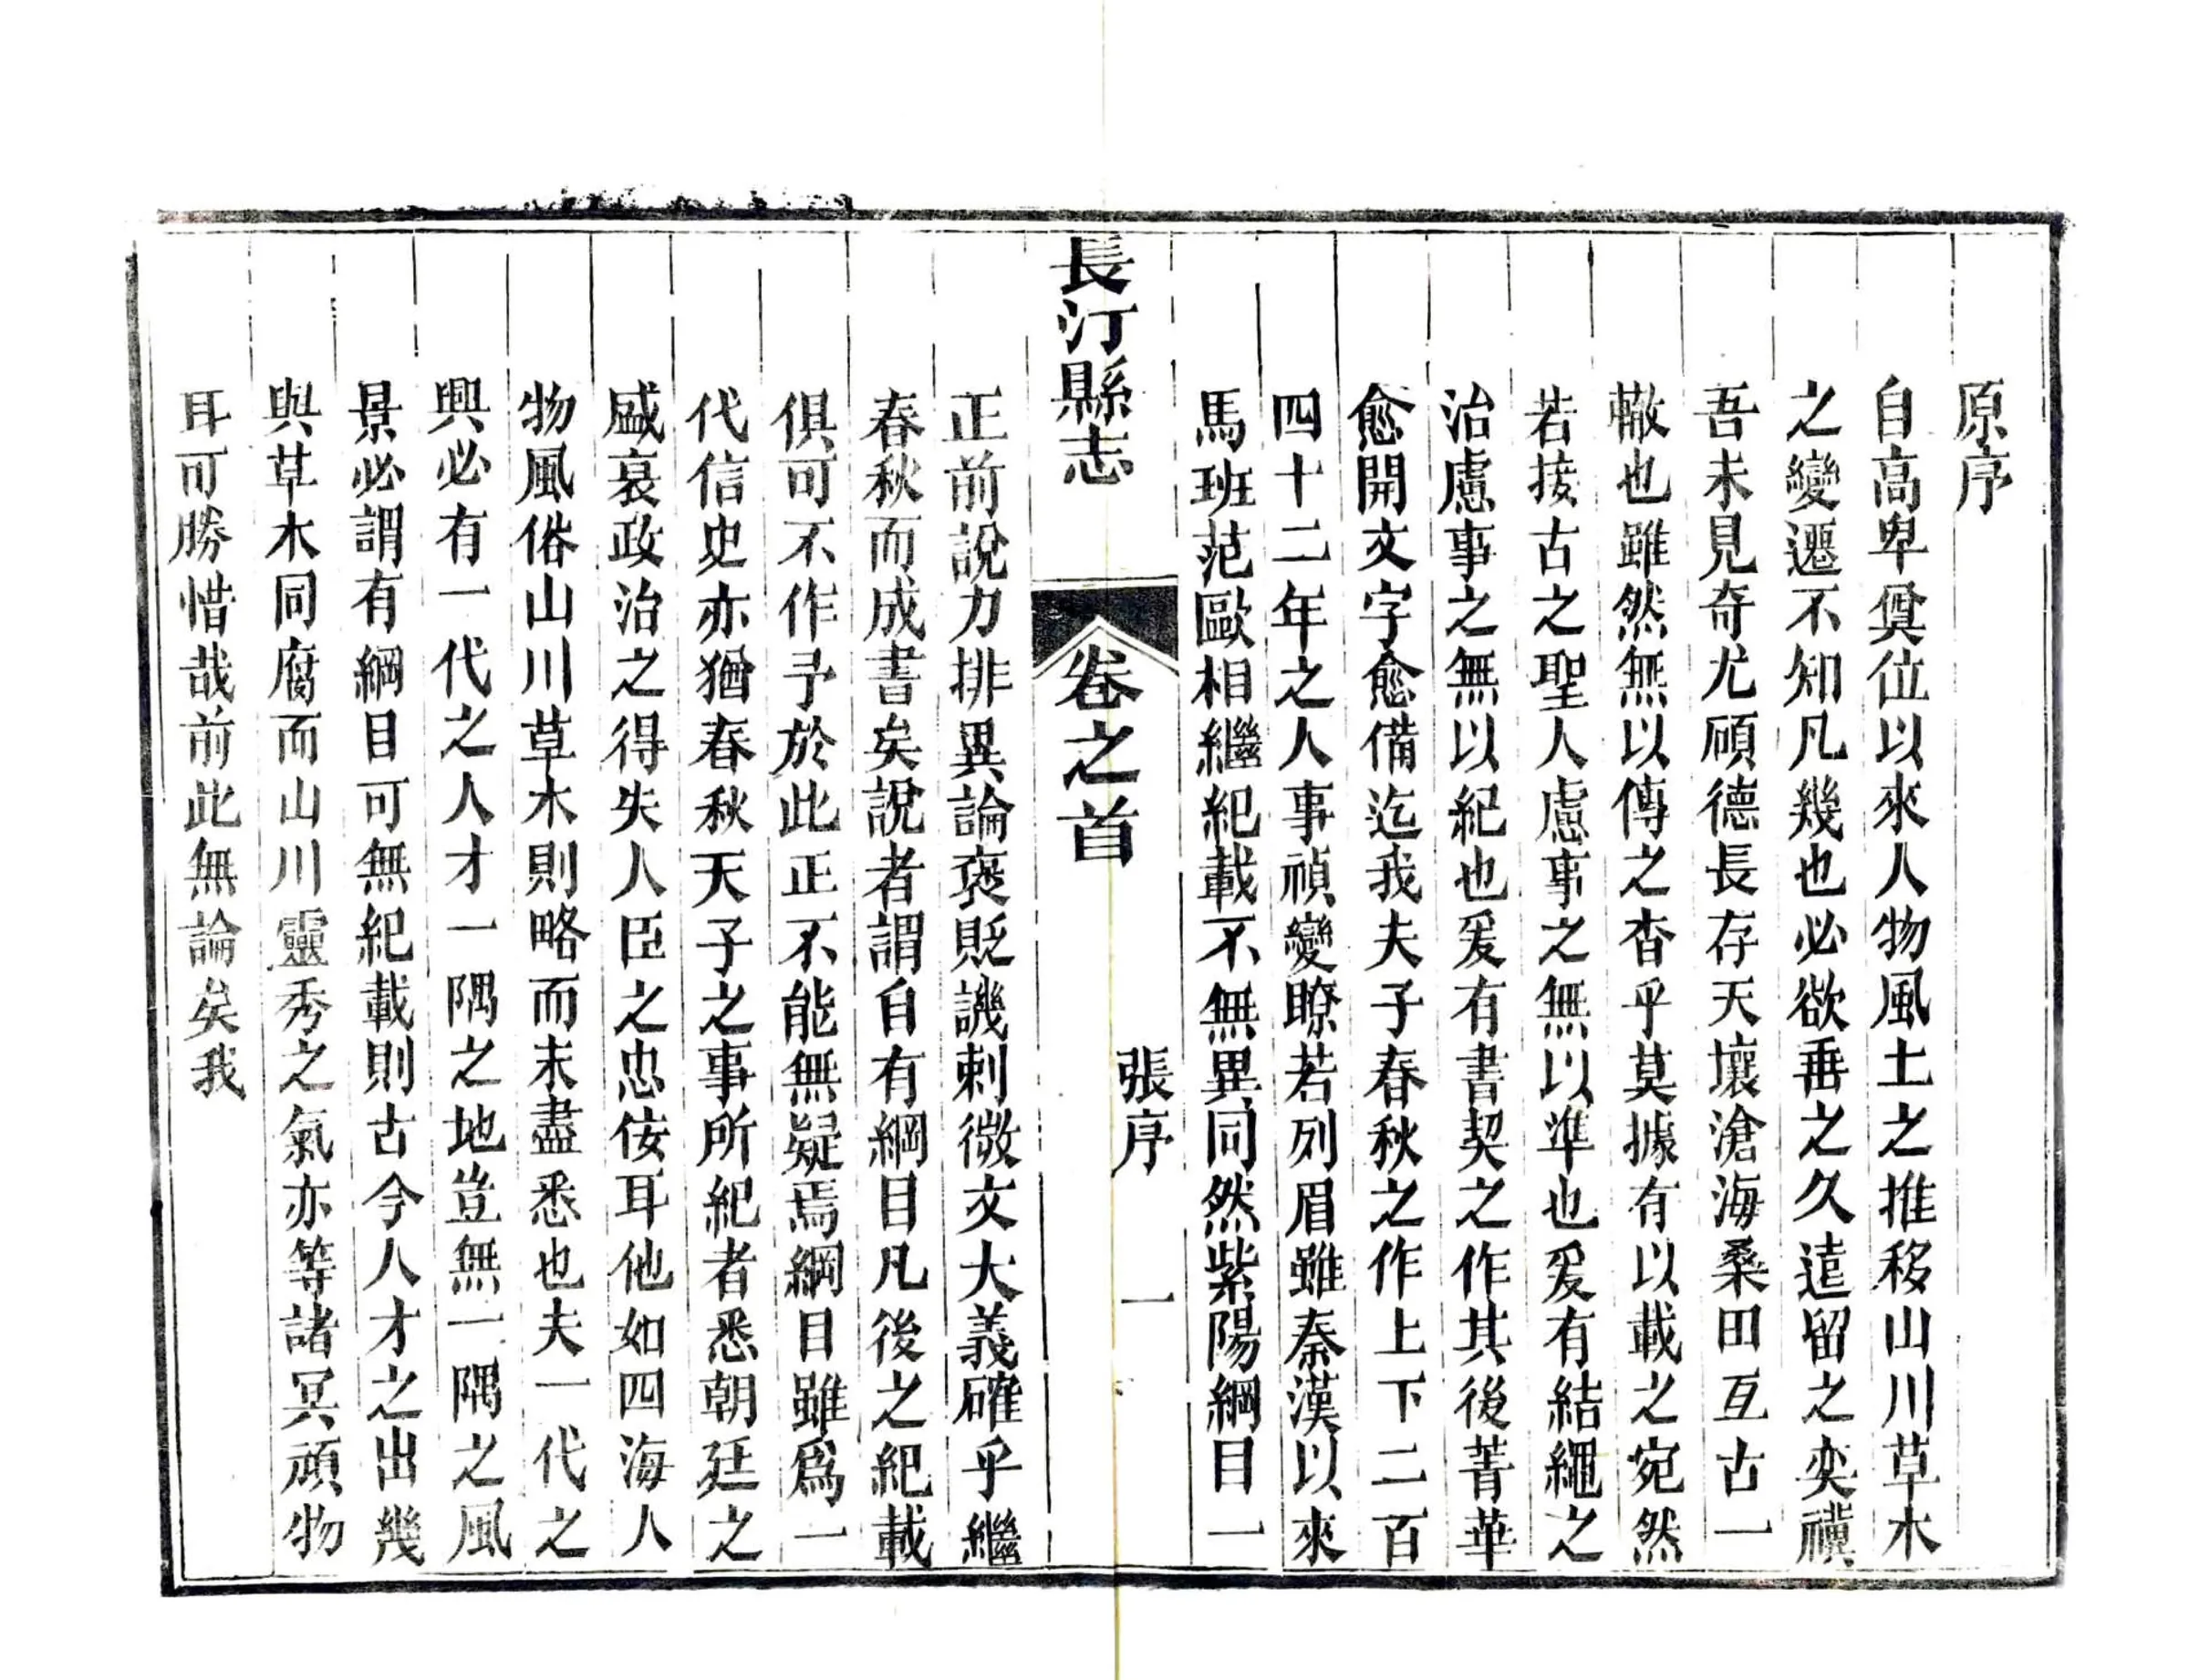 原序
自高卑奠位以來人物風土之推移山川草木
之變遷不知凡幾也必欲垂之久遠留之奕禩
吾未見奇尤頎德長存天壤滄海桑田亙古一
轍也雖然無以傳之杳乎莫據有以載之宛然
若接古之聖人慮事之無以準也爰有結繩之
治慮事之無以紀也爰有書契之作其後菁華
愈開文字愈備迄我夫子春秋之作上下二百
四十二年之人事禎變瞭若列眉雖秦漢以來
馬班范歐相繼紀載不無異同然紫陽綱目一
長汀縣志
卷之首
張序
一
正前說力排異論褒貶譏刺微文大義確乎繼
春秋而成書矣說者謂自有綱目凡後之紀載
俱可不作予於此正不能無疑焉綱目雖爲一
代信史亦猶春秋天子之事所紀者悉朝廷之
盛衰政治之得失人臣之忠佞耳他如四海人
物風俗山川草木則略而未盡悉也夫一代之
興必有一代之人才一隅之地豈無一隅之風
景必謂有綱目可無紀載則古今人才之出幾
與草木同腐而山川靈秀之氣亦等諸冥頑物
耳可勝惜哉前此無論矣我